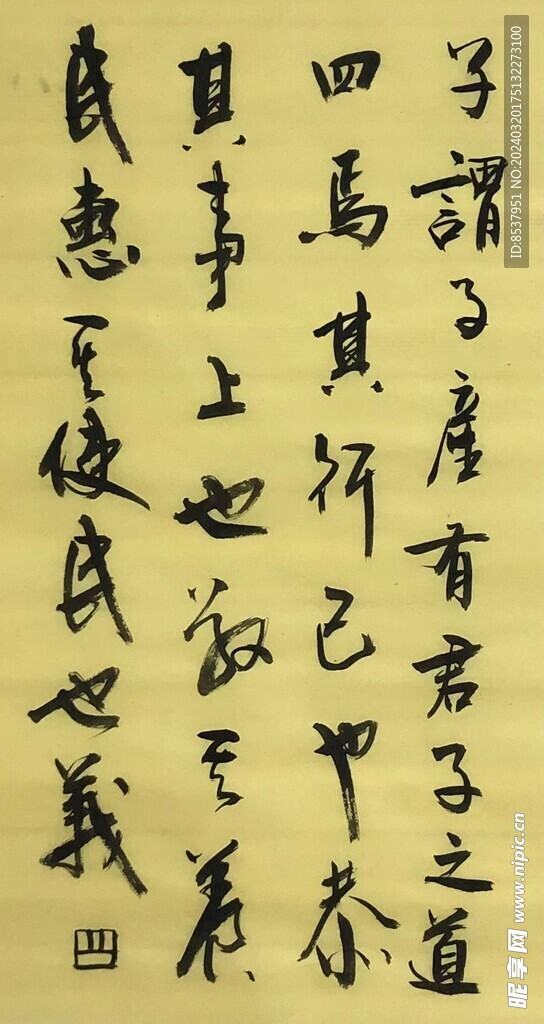 子謂子產有君子之道
四焉其行己也恭
其事上也敬其養
民惠其使民也義
四
ID:8537951 NO:20240320175132273100
昵享网 www.nipic.cn